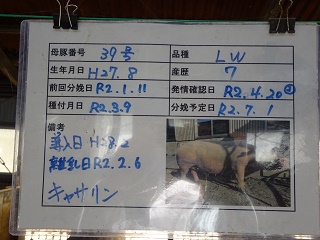 母豚番号 39号 品種 LW
生年月日 H27.8 産歴 7
前回分娩日 R2.1.11 発情確認日 R2.4.20
種付月日 R2.3.9 分娩予定日 R2.7.1
備考
導入日 H28.2
離乳日 R2.2.6
キャサリン